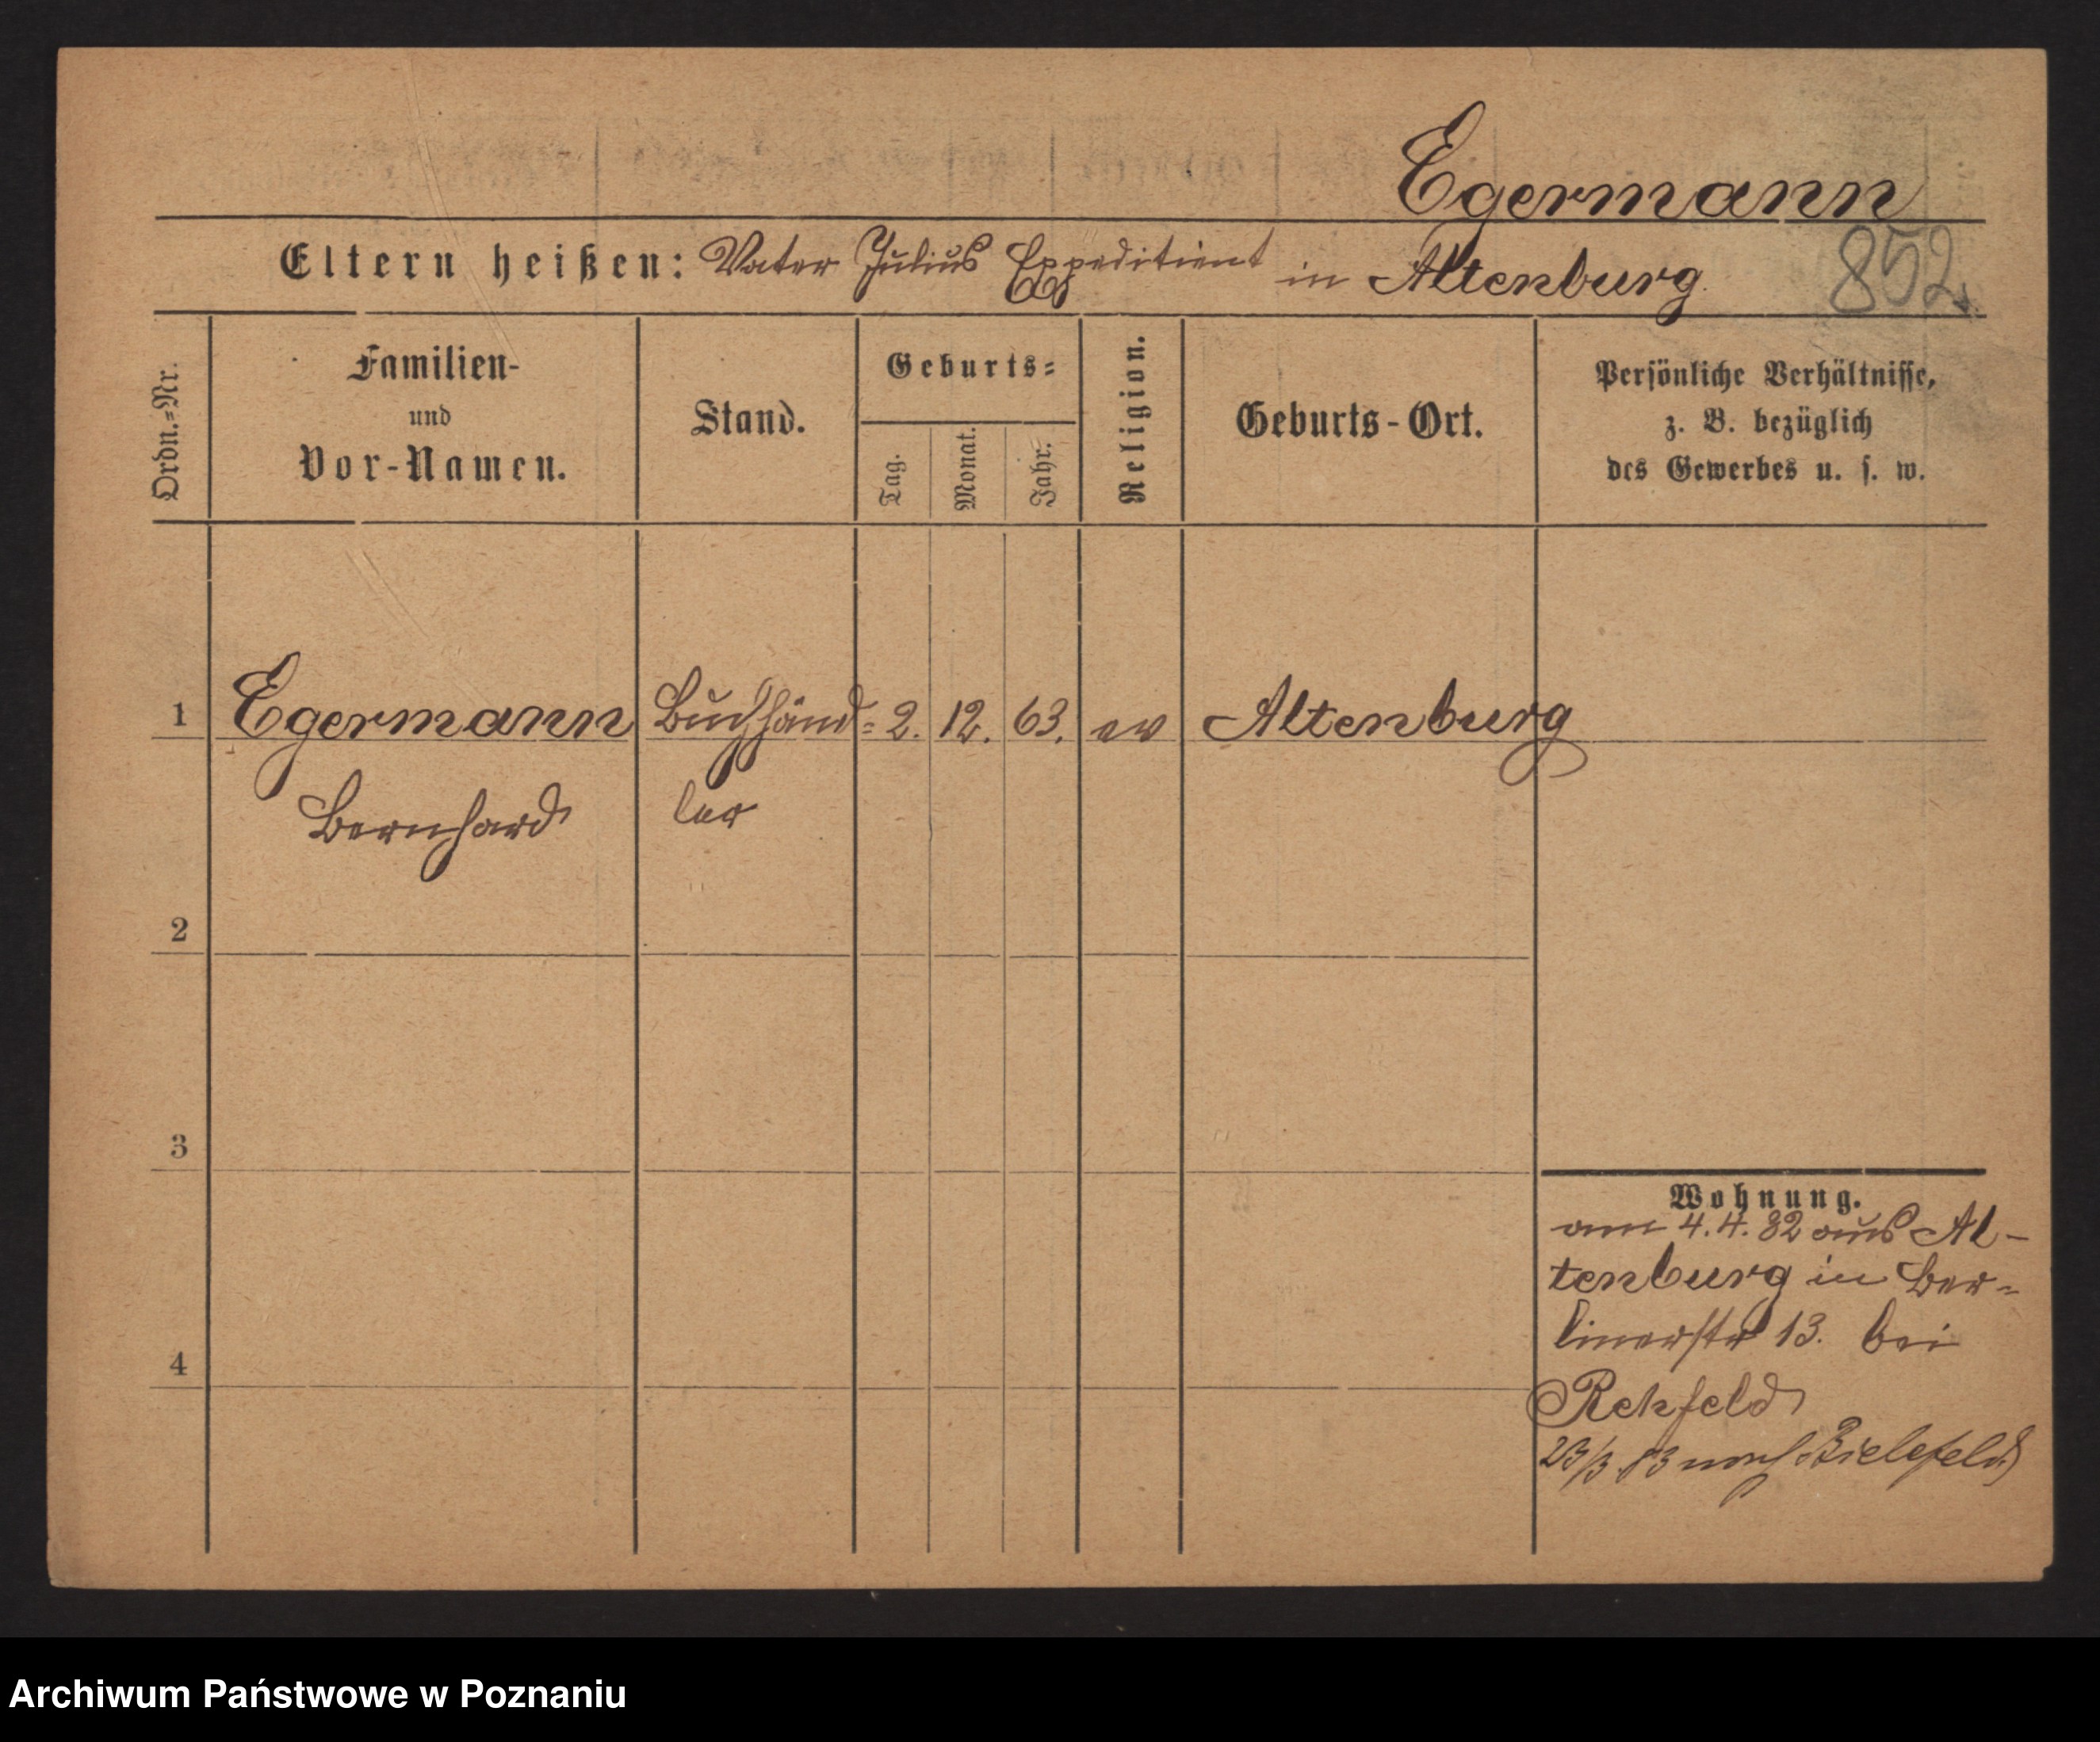 Egermann
Eltern heißen: Vater Julius Expeditient in Altenburg.
852.
Ordn.-Nr.
Familien-
und
Vor-Namen.
Stand.
Geburts-
Tag.
Monat.
Jahr.
Religion.
Geburts-Ort.
Persönliche Verhältnisse,
z. B. bezüglich
des Gewerbes u. s. w.
1 Egermann Buchhänd- 2. 12. 63. ev Altenburg
Bernhard ler
2
3
4
Wohnung.
am 4.4.82 aus Al-
tenburg in Ber-
linerstr 13. bei
Rehfeld
23/3 83 nach Bielefeld
Archiwum Państwowe w Poznaniu